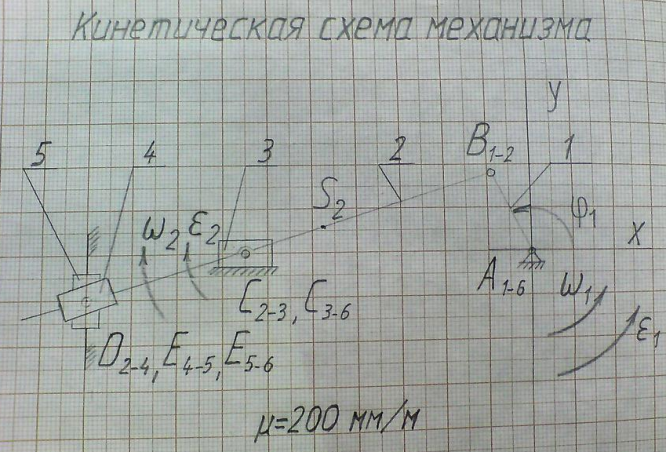 Кинетическая схема механизма
y
5 4 3 2 B₁₋₂ 1
S₂ φ₁
ω₂ ε₂ x
C₂₋₃, C₃₋₆ A₁₋₆ ω₁
ε₁
D₂₋₄, E₄₋₅, E₅₋₆
μ=200 мм/м